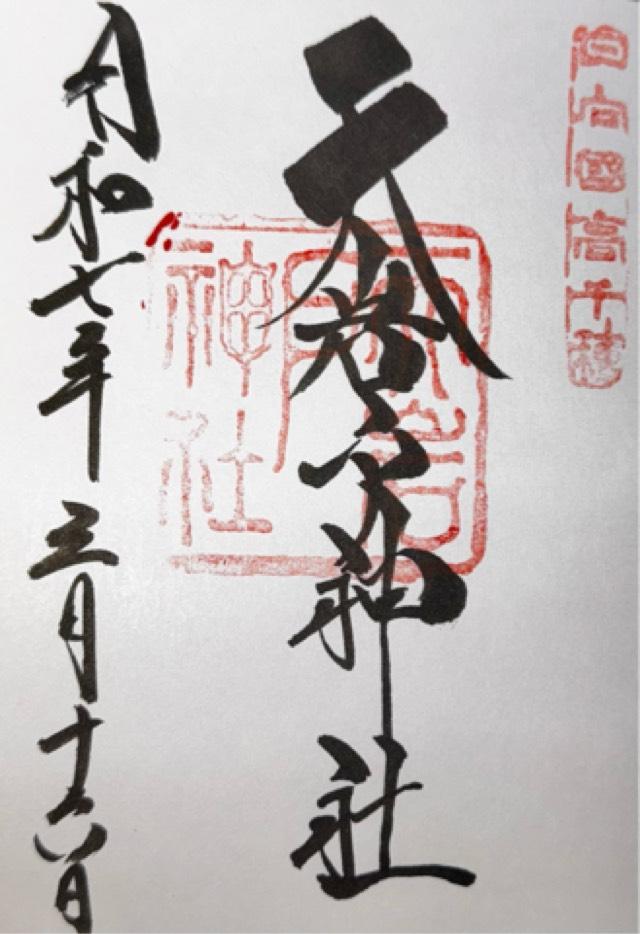 日向國高千穂
天岩戸神社
天岩戸
神社
令和七年三月十六日